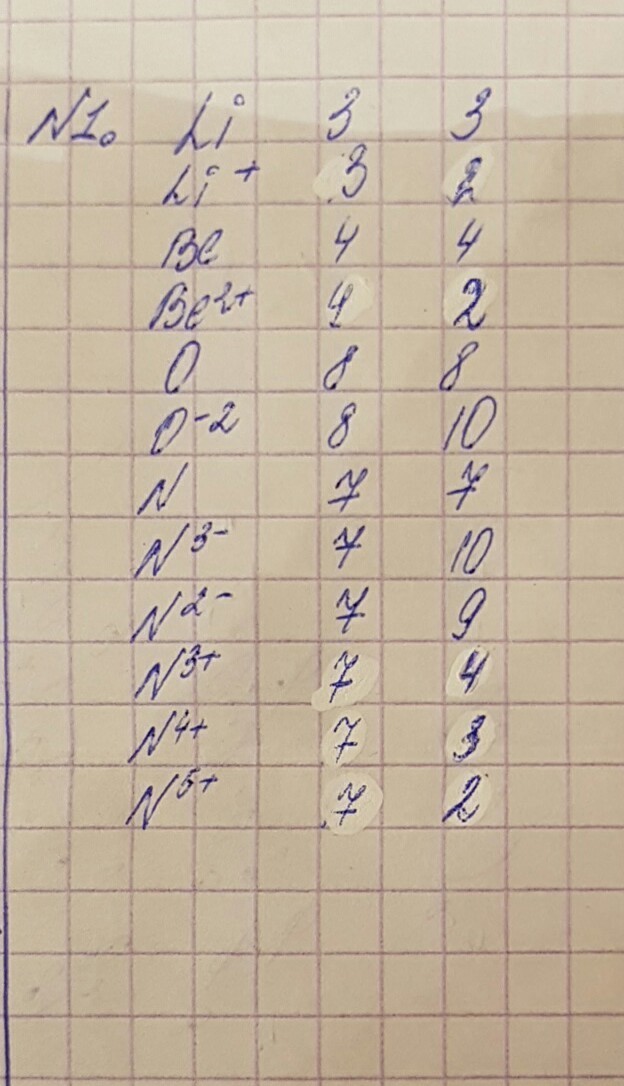 N1. Li 3 3
Li+ 3 2
Be 4 4
Be2+ 4 2
O 8 8
O-2 8 10
N 7 7
N3- 7 10
N2- 7 9
N3+ 7 4
N4+ 7 3
N5+ 7 2